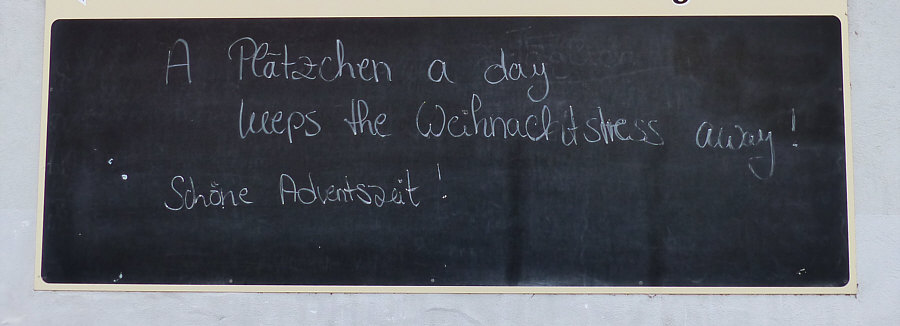 A Plätzchen a day
keeps the Weihnachtstress away!
Schöne Adventszeit!